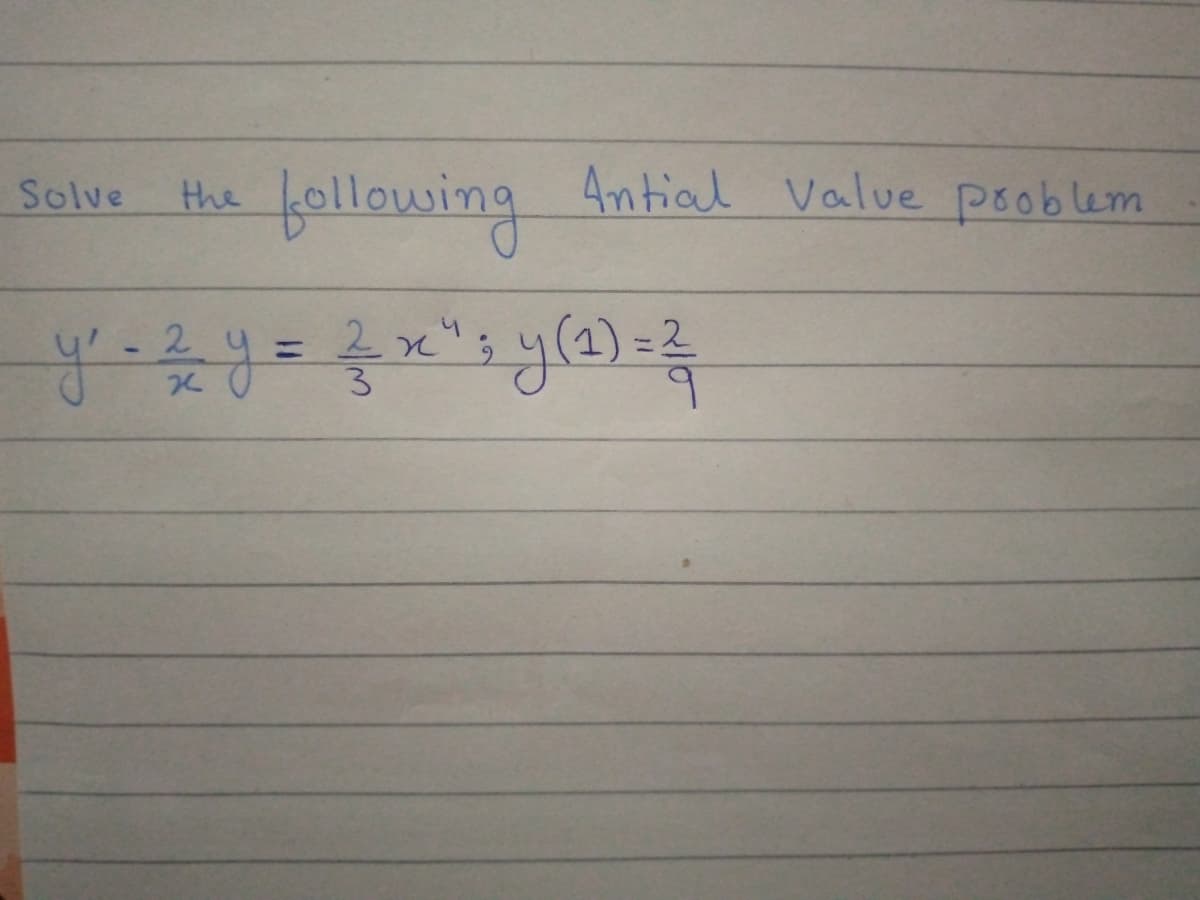 Solve the following Antial Value problem.
y' - 2/x y = 2/3 x⁴ ; y(1) = 2/9